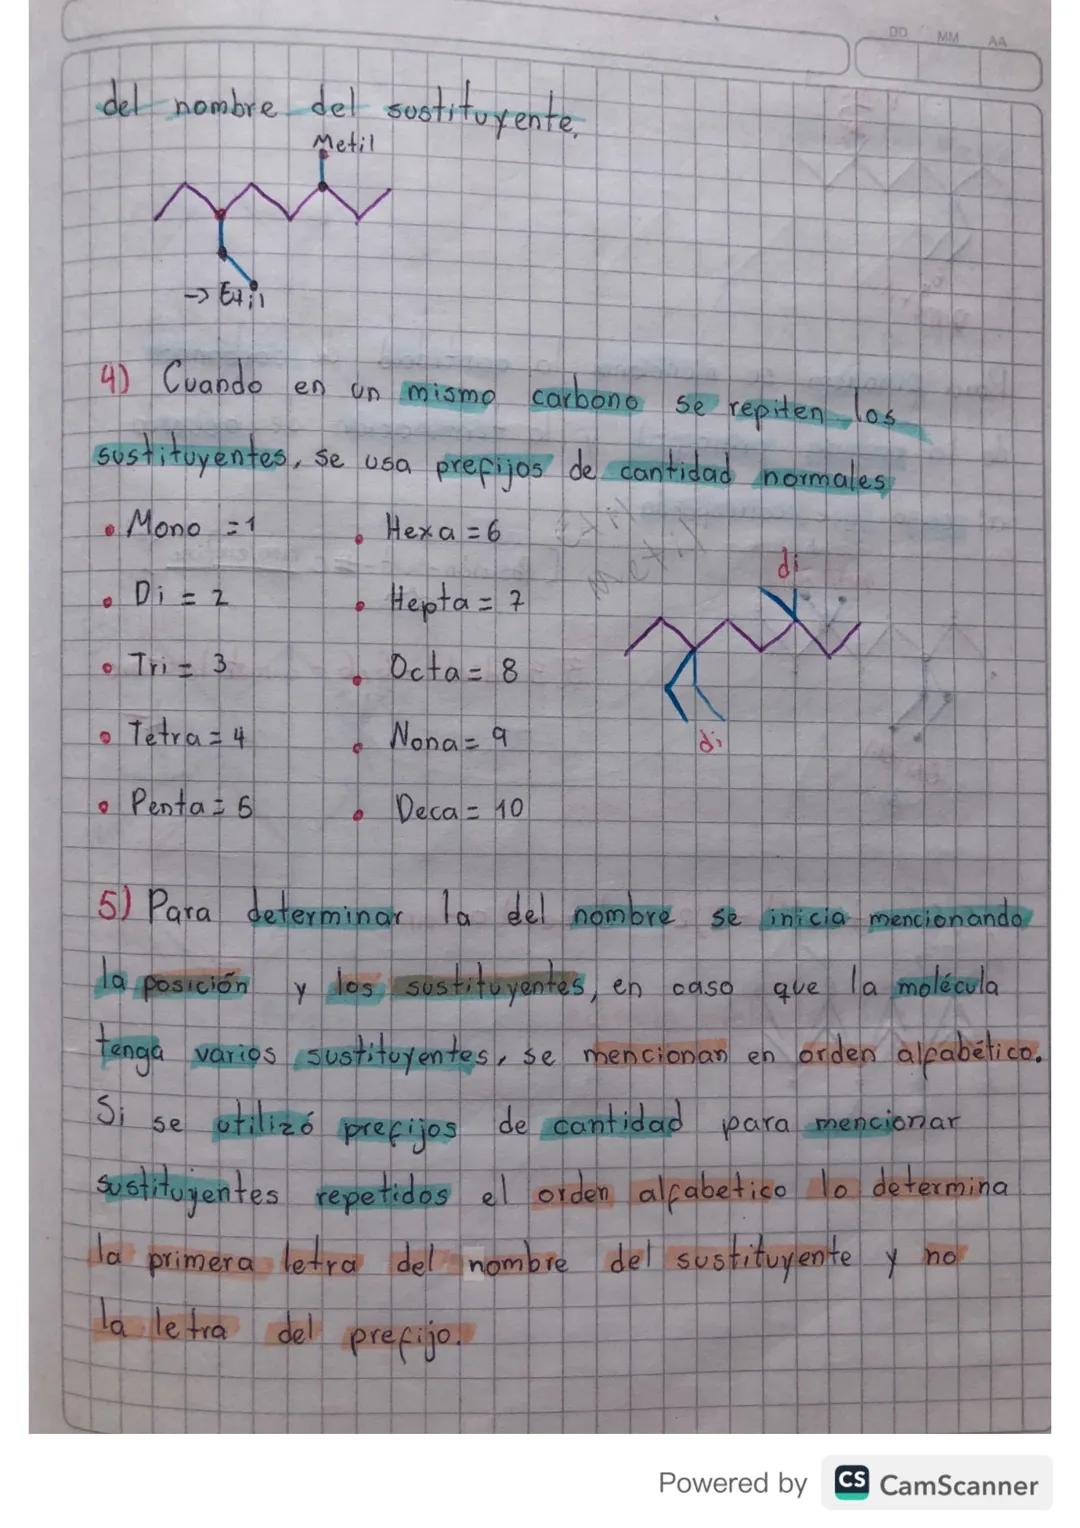 DD MM AA
del nombre del sustituyente.
Metil
→ Etil
4) Cuando en un mismo carbono se repiten los
sustituyentes, se usa prefijos de cantidad normales
• Mono =1
• Di = 2
• Tri = 3
• Tetra = 4
• Penta = 5
• Hexa = 6
• Hepta = 7
• Octa = 8
• Nona = 9
• Deca = 10
metil
di
di
5) Para determinar la del nombre se inicia mencionando
la posición y los sustituyentes, en caso que la molécula
tenga varios sustituyentes, se mencionan en orden alfabético.
Si se utilizó prefijos de cantidad para mencionar
sustituyentes repetidos el orden alfabetico lo determina
la primera letra del nombre del sustituyente y no
la letra del prefijo.
Powered by CS CamScanner